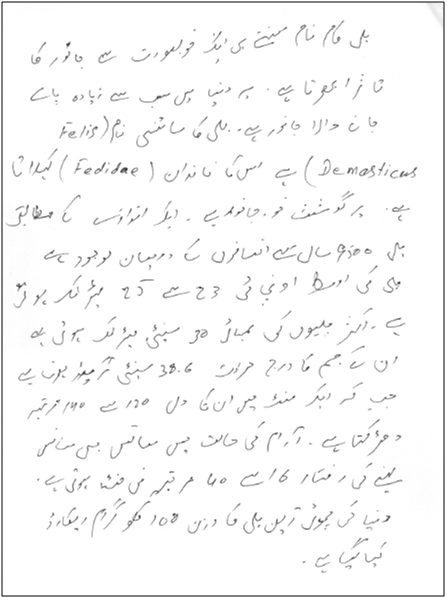 بلی کام نام سنتے ہی ایک خوبصورت سے جانور کا
تاثر ابھرتا ہے۔ یہ دنیا میں سب سے زیادہ پالے
جانے والا جانور ہے۔ بلی کا سائنسی نام (Felis
Demosticus) ہے اس کا خاندان (Fedidae) کہلاتا
ہے۔ یہ گوشت خور جانور ہے۔ ایک اندازے کے مطابق
بلی 9500 سال سے انسانوں کے درمیان موجود ہے
بلی کی اوسط اونچائی 23 سے 25 سینٹی میٹر تک ہوتی
ہے۔ اکثر بلیوں کی لمبائی 30 سینٹی میٹر تک ہوتی ہے
ان کے جسم کا درجہ حرارت 38.6 سینٹی گریڈ ہوتا ہے
جب کہ ایک منٹ میں ان کا دل 120 سے 140 مرتبہ
دھڑکتا ہے۔ آرام کی حالت میں سانس
لینے کی رفتار 16 سے 40 مرتبہ فی منٹ ہوتی ہے۔
دنیا کی چھوٹی ترین بلی کا وزن 108 کلو گرام ریکارڈ
کیا گیا ہے۔